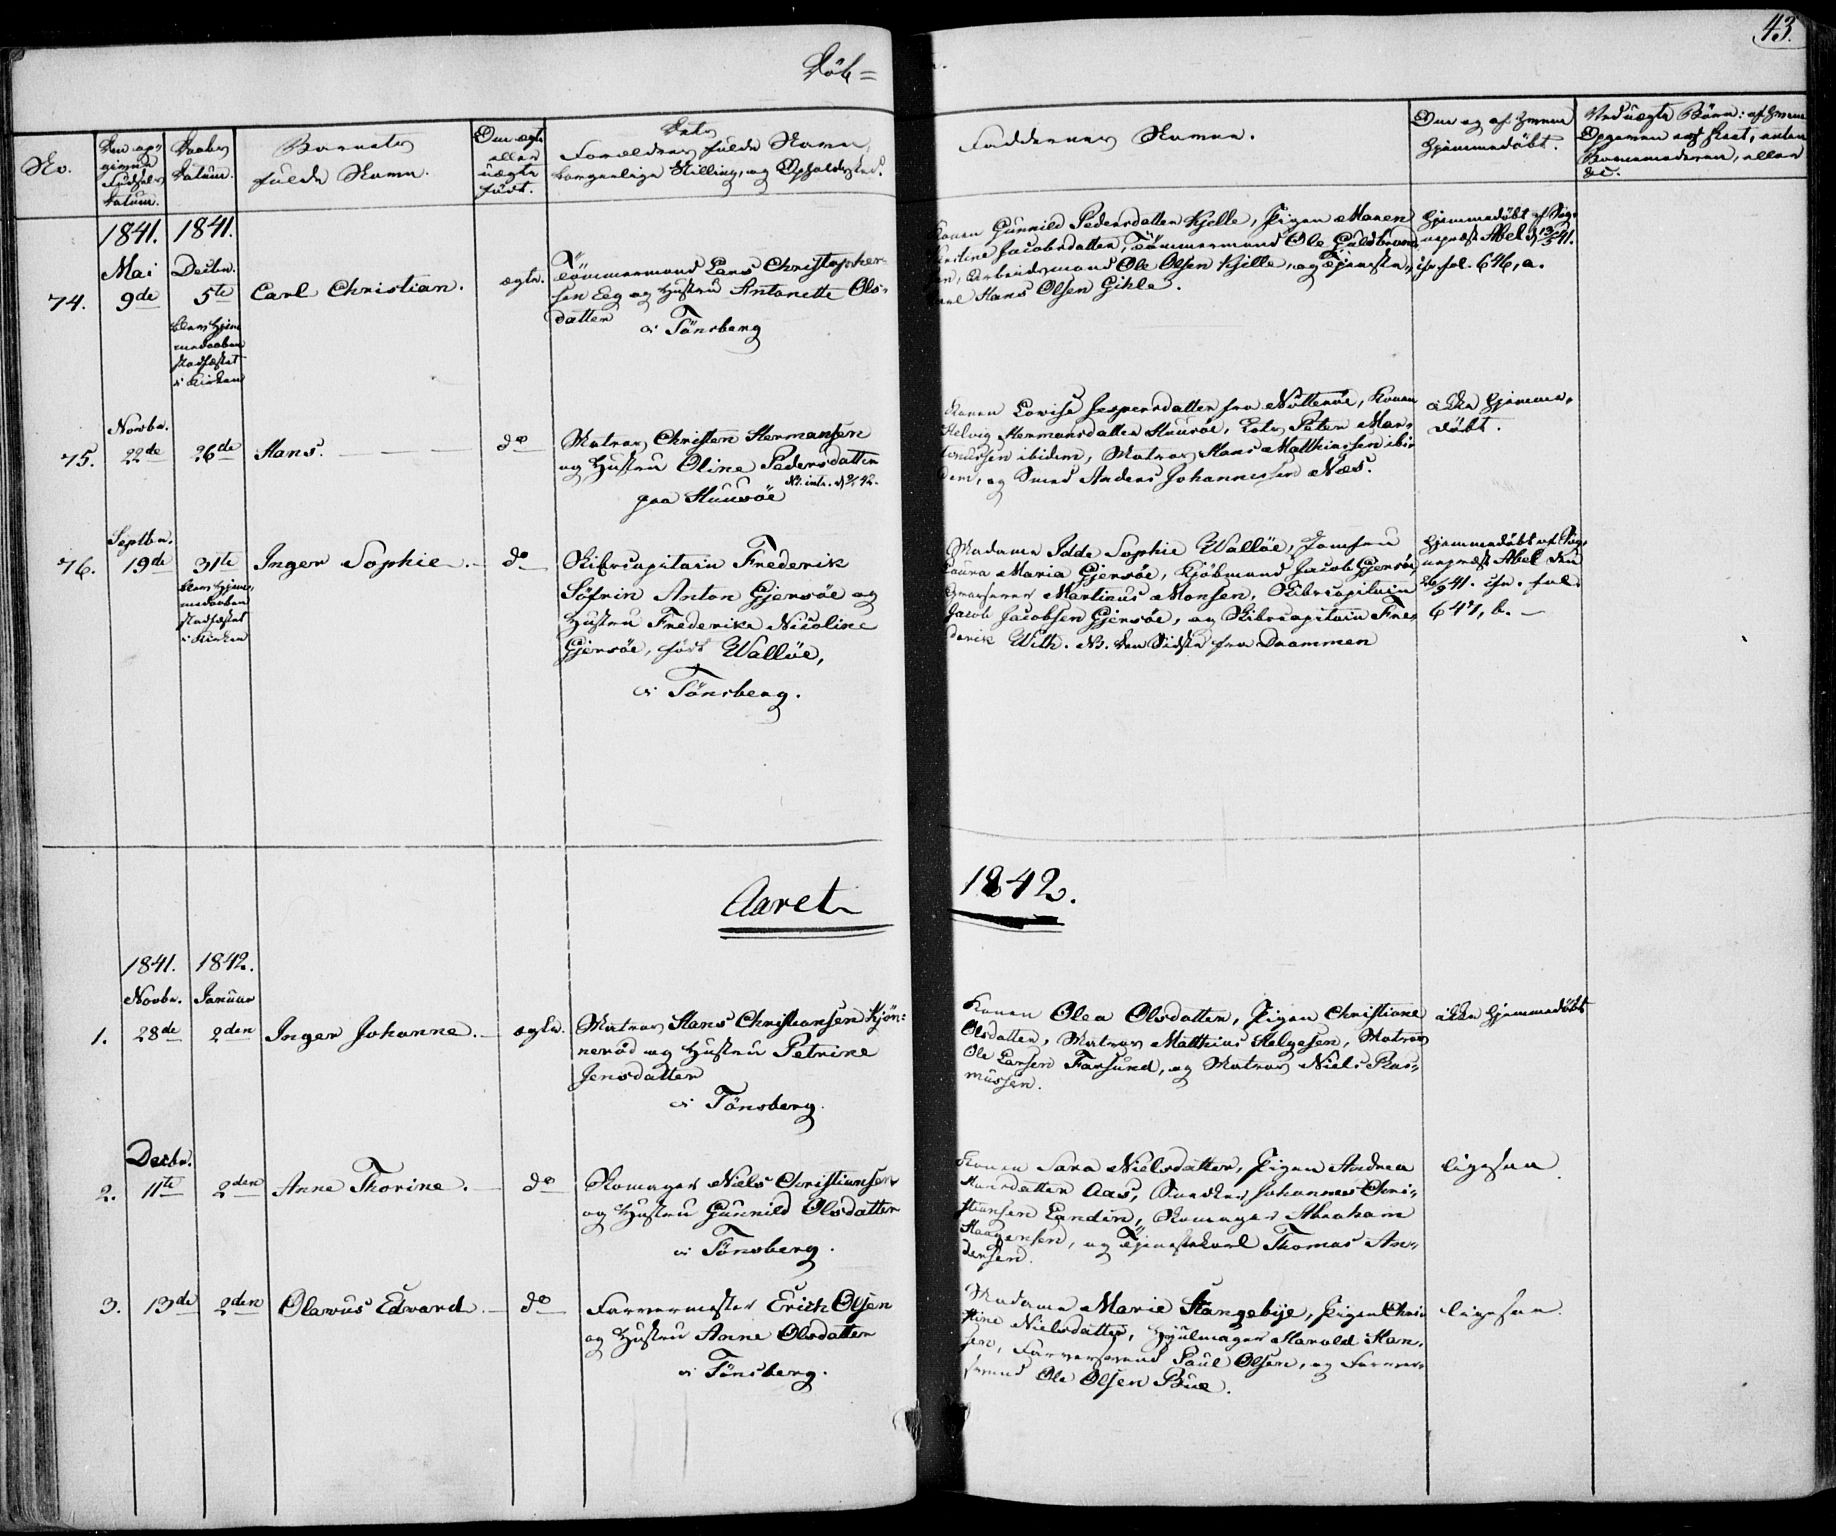 Döb=
43.
No.
Den op-
givne
Fødsels
Datum.
Daabs
Datum.
Barnets
fulde Navn.
Om ægte
eller
uægte
født.
Dets
Forældres fulde Navn,
borgerlige Stilling, og Opholdssted.
Faddernes Navne.
Om og af hvem
hjemmedøbt.
Ved uægte Börn: af hvem
Opgaven er skeet, enten
Barnemoderen, eller
&c.
1841. 1841.
Mai Decbr.
74. 9de 5te Carl Christian. ægte.
blev hjem
medaaben
stadfæstet
i Kirken
Tömmermand Lars Christopher-
sen Eeg og Hustru Antonette Ols-
datter
i Tönsberg
Konen Gunnild Pedersdatter Kjelle, Pigen Maren
Kirstine Jacobsdatter, Tömmermand Ole Guldbrand-
sen, Arbeidsmand Ole Olsen Kjelle, og Tjeneste-
karl Hans Olsen Gihle.
Hjemmedøbt af Sog-
nepræst Abel d 13/5 41.
cfr. fol. 646, a.
Novbr.
75. 22de 26de Hans. do
Matros Christen Hermansen
og Hustru Oline Pedersdatter
paa Huusöe
NB. intr. d 2/1 42.
Konen Lovise Jespersdatter fra Nötteröe, Konen
Helvig Hermansdatter Huusöe, Lods Peter Mar-
cussen ibidem, Matros Hans Matthiassen ibi-
dem, og Smed Anders Johannesen Næs.
ikke hjemme-
døbt.
Septbr.
76. 19de 31te Inger Sophie. do
blev hjem-
medaaben
stadfæstet
i Kirken
Skibscapitain Frederik
Söfrin Anton Gjersöe og
Hustru Frederike Nicoline
Gjersöe, født Wallöe,
i Tönsberg.
Madame Idde Sophie Wallöe, Jomfru
Laura Maria Gjersöe, Kjöbmand Jacob Gjersöe,
Martinus Monsen, Skibscapitain
Jacob Jacobsen Gjersöe, og Skibscapitain Fre-
derik With. NB. den Sidste fra Drammen
Hjemmedøbt af Sog-
nepræst Abel den
26/9 41. cfr. fol.
647, b.
Aaret 1842.
1841. 1842.
Novbr. Januar
1. 28de 2den Inger Johanne. ægte.
Matros Hans Christiansen Kjön-
neröd og Hustru Petrine
Jensdatter
i Tönsberg.
Konen Olea Olsdatter, Pigen Christiane
Olsdatter, Matros Matthias Helgesen, Matros
Ole Larsen Farsund, og Matros Niels Ras-
mussen.
ikke hjemmedøbt
Decbr.
2. 11te 2den Anne Thorine. do
Skomager Niels Christiansen
og Hustru Gunnild Olsdatter
i Tönsberg.
Konen Sara Nielsdatter, Pigen Andrea
Hansdatter Aas, Snedker Johannes Chri-
stiansen Landin, Skomager Abraham
Haagensen, og Tjenestekarl Thomas An-
dersen.
ligesaa
3. 13de 2den Olavus Edvard. do
Farvermester Erich Olsen
og Hustru Anne Olsdatter
i Tönsberg.
Madame Marie Stangebye, Pigen Chri-
stine Nielsdatter, Hjulmager Harald Han-
sen, Farversvend Paul Olsen, og Farver-
svend Ole Olsen Bue.
ligesaa.